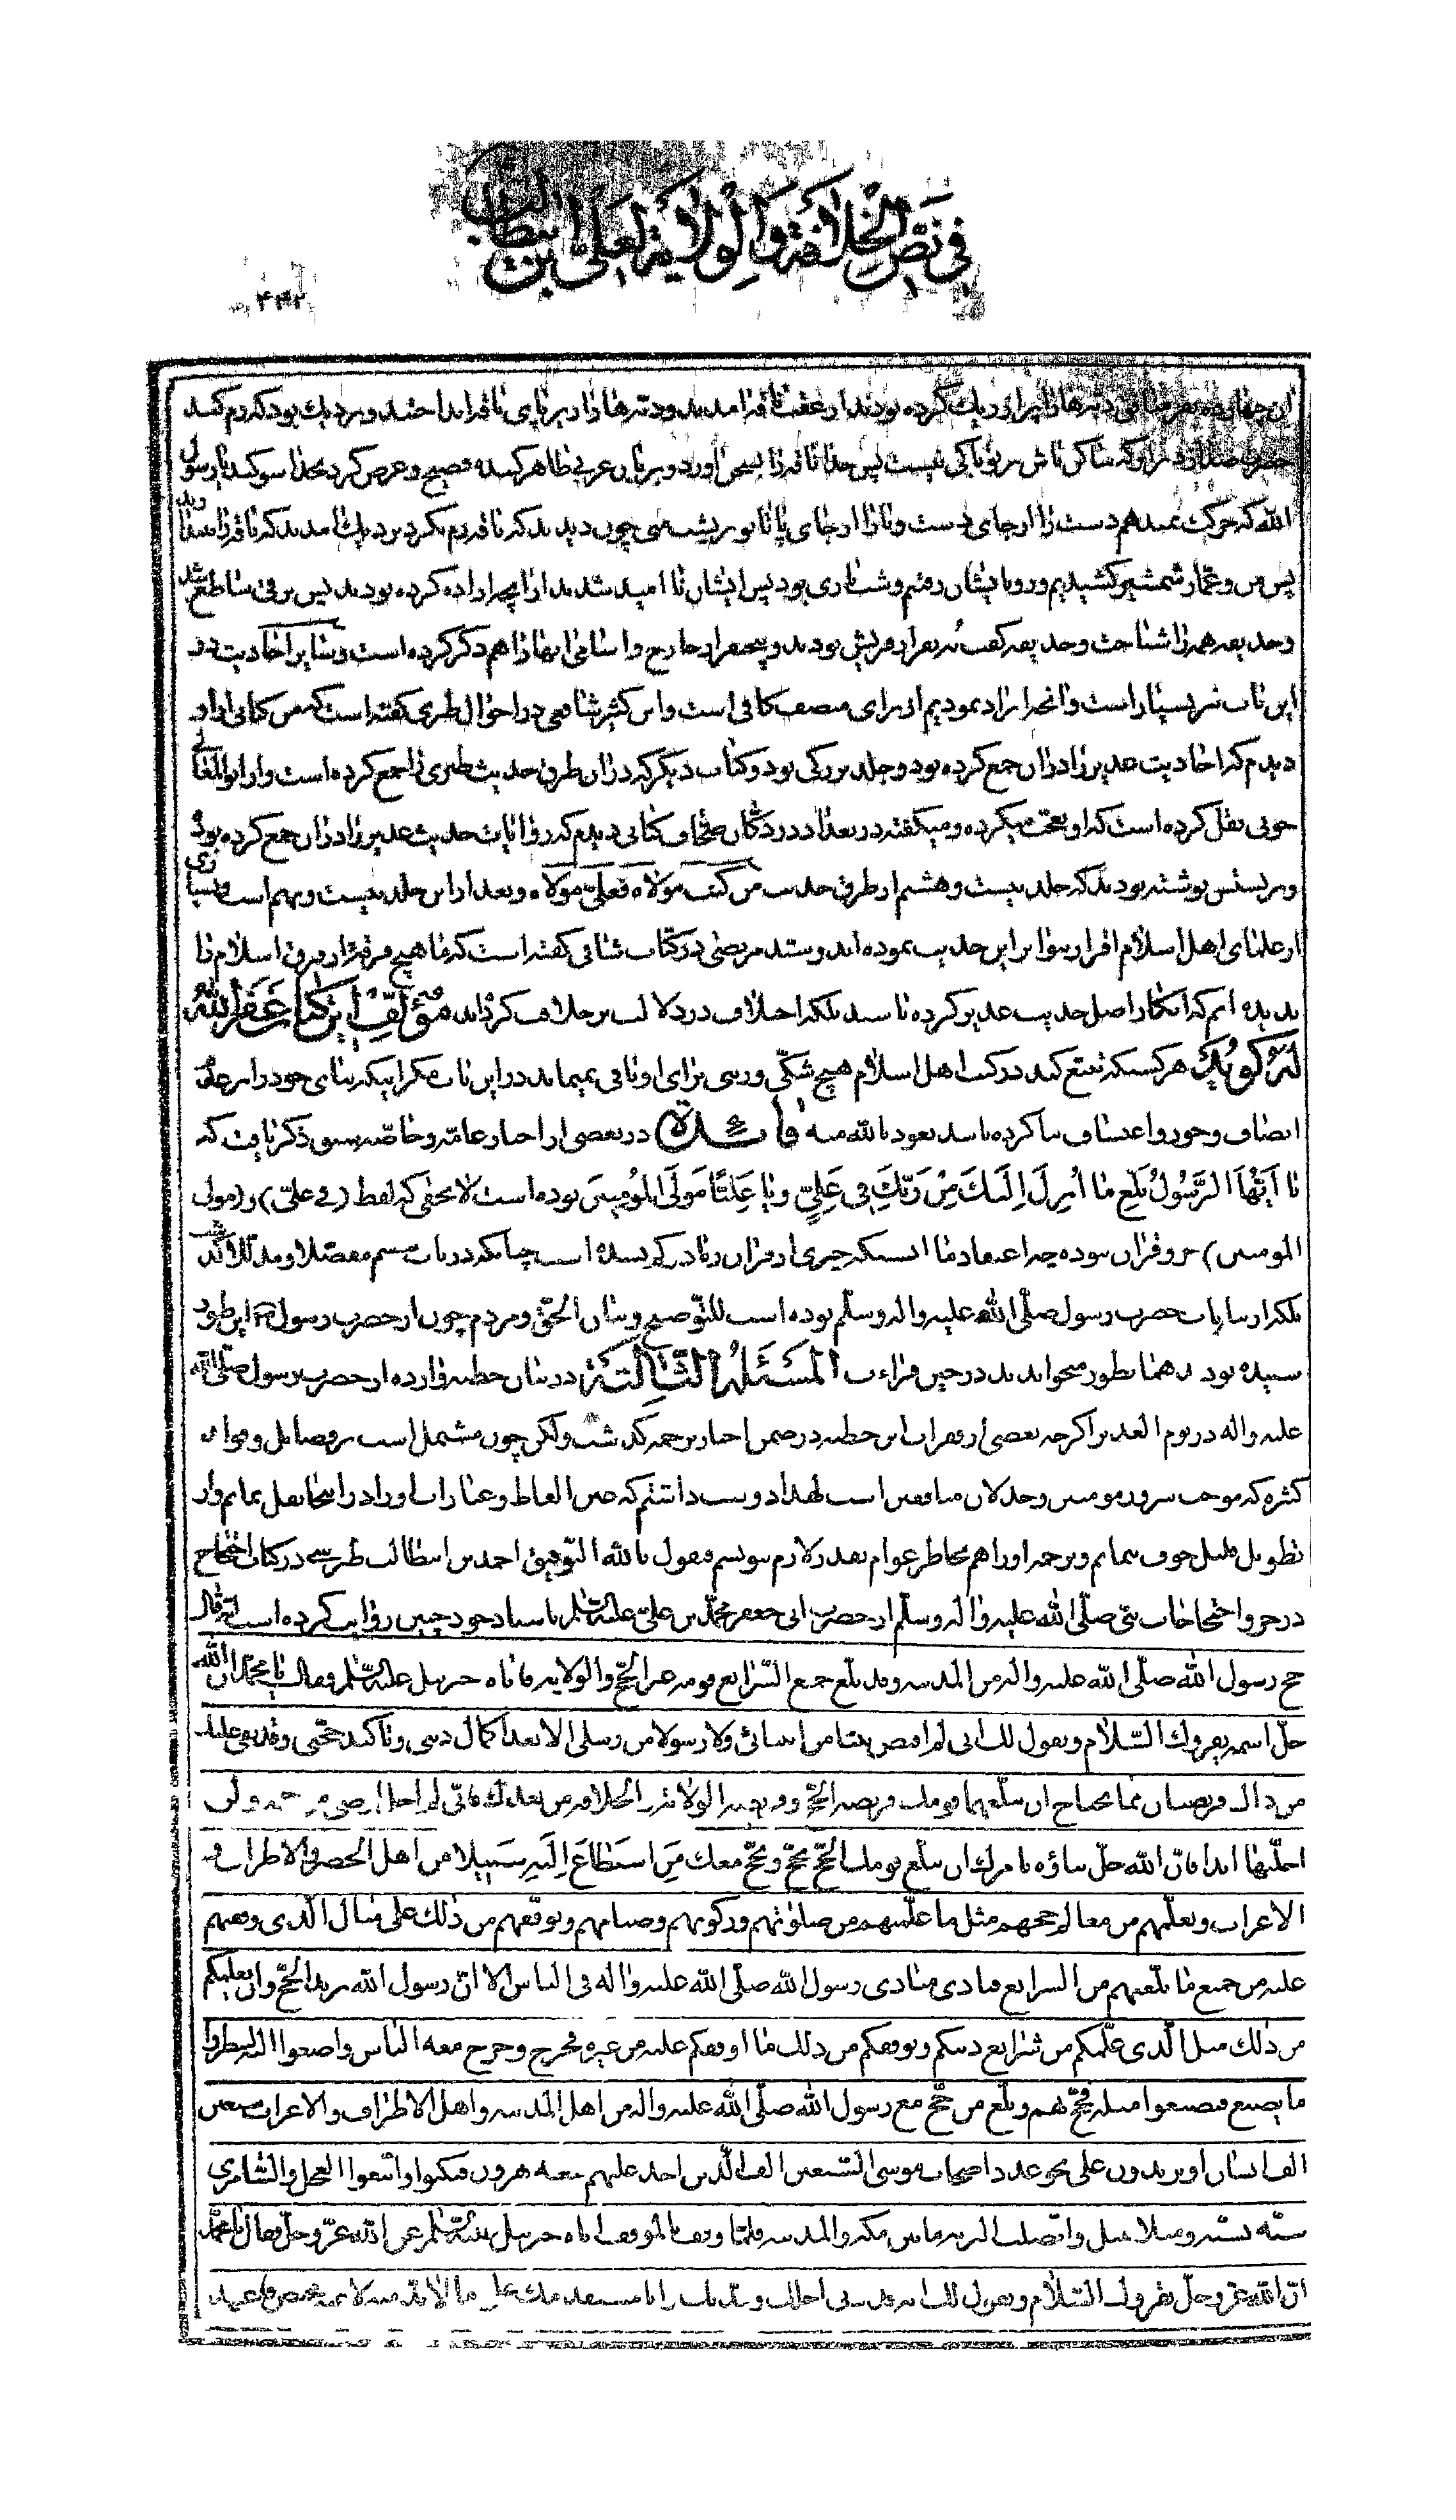 فی نص الخلافة والولایة لعلی بن ابیطالب
۴۳۲
ان چهارده نفر منافق دبه‌ها را پر از ریک کرده بودند از عقب ناقه آمدند و دبه‌ها را در پای ناقه انداختند و نزدیک بود که رم کند
حضرت صدا زد مر او را که ساکن باش بر تو باکی نیست پس خدا ناقه را بسخن آورد و بزبان عربی ظاهر کننده فصیح و عرض کرد بخدا سوکند یا رسول
الله که حرکت نمیدهم دست را از جای دست و نه پا را از جای پا تا تو بر پشت منی چون دیدند که ناقه رم نکرد نزدیک آمدند که ناقه را بیندازند
پس من و عمار شمشیر کشیدیم و رو بایشان رفتیم و شب تاری بود پس ایشان نا امید شدند از آنچه اراده کرده بودند پس برقی ساطع شد
و حذیفه همه را شناخت و حذیفه کفت نه نفر از قریش بودند و پنجنفر از خارج و اسامی آنها را هم ذکر کرده است و بنابر احادیث در
این باب بسیار است و آنچه ایراد نمودیم از برای منصف کافی است و ابن کثیر شامی در احوال طبری کفته است که من کتابی از او
دیدم که احادیث غدیر را در آن جمع کرده بود دو جلد بزرکی بود و کتاب دیکر که در آن طرق حدیث طیر را جمع کرده است و از ابوالمعالی
جوینی نقل کرده است که او تعجب میکرده و میکفته در بغداد در دکان صحافی کتابی دیدم که روایات حدیث غدیر را در آن جمع کرده بود
و بر پشتش نوشته بودند که جلد بیست و هشتم از طرق حدیث من کنت مولاه فعلی مولاه و بعد از این جلد بیست و نهم است و بسیاری
از علمای اهل اسلام اقرار بتواتر این حدیث نموده‌اند و سید مرتضی در کتاب شافی کفته است که ما هیچ فرقه از فرق اسلام را
ندیده‌ایم که انکار اصل حدیث غدیر کرده باشند بلکه اختلاف در دلالت بر خلافت کرده‌اند مؤلف این کتاب غفر الله
له کوید هر کسیکه تتبع کند در کتب اهل اسلام هیچ شکی و ریبی برای او باقی نمیماند در این باب مکر اینکه بنای خود را بر عدم
انصاف و جور و اعتساف بنا کرده باشد نعوذ بالله منه فائدة در بعضی از اخبار عامه و خاصه سبق ذکر یافت که
یا ایها الرسول بلغ ما انزل الیک من ربک فی علی و یا علیا مولی المومنین بوده است لا یخفی که لفظ (فی علی) و (مولی
المومنین) جزو قرآن نبوده چه اعتقاد ما اینستکه چیزی از قرآن زیاد و کم نشده است چنانکه در باب سیم مفصلا و مدللا کذشت
بلکه از بیانات حضرت رسول صلی الله علیه واله وسلم بوده است للتوضیح وبیان الحق و مردم چون از حضرت رسول این طور
شنیده بودند همان بطور میخواندند در حین قرائت المسئلة الثالثة در بیان خطبه وارده از حضرت رسول صلی الله
علیه واله در یوم الغدیر اکرچه بعضی از فقرات این خطبه در ضمن اخبار ترجمه کذشت ولکن چون مشتمل است بر فضائل و فوائد
کثیره که موجب سرور مومنین و خذلان منافقین است لهذا دوست داشتم که عین الفاظ و عبارات او را در اینجا نقل نمایم و از
تطویل مُمل خوف ننمایم و ترجمه او را هم بخاطر عوام بقدر لازم بنویسم فنقول بالله التوفیق احمد بن ابیطالب طبرسی در کتاب احتجاج
در جزو احتجاجات نبی صلی الله علیه واله وسلم از حضرت ابی جعفر محمد بن علی علیه السلام باسناد خود چنین روایت کرده است انه قال
حج رسول الله صلی الله علیه واله من المدینه وقد بلغ جمیع الشرایع قومه غیر الحج والولایه فاتاه جبرئیل علیه السلم وقال یا محمد ان الله
جل اسمه یقروک السلام ویقول لک انی لم اقبض نبیا من انبیائی ولا رسولا من رسلی الا بعد اکمال دینی وتاکید حجتی وقد بقی علیک
من ذلک فریضتان مما یحتاج ان تبلغهما قومک فریضه الحج وفریضه الولایة والخلافه من بعدک فانی لم اخل ارضی من حجة ولن
اخلیها ابدا فان الله جل ثناؤه یامرک ان تبلغ قومک الحج تحج ویحج معک من استطاع الیه سبیلا من اهل الحضر والاطراف و
الاعراب وتعلمهم من معالم حجهم مثل ما علمتهم من صلوتهم وزکوتهم وصیامهم وتوقفهم من ذلک علی مثال الذی وقفتهم
علیه من جمیع ما بلغتهم من الشرایع فنادی منادی رسول الله صلی الله علیه واله فی الناس الا ان رسول الله یرید الحج وان یعلمکم
من ذلک مثل الذی علمکم من شرایع دینکم ویوقفکم من ذلک ما اوقفکم علیه من غیره فخرج وخرج معه الناس واصغوا الیه لینظروا
ما یصنع فیصنعوا مثله فحج بهم وبلغ من حج مع رسول الله صلی الله علیه واله من اهل المدینه واهل الاطراف والاعراب سبعین
الف انسان او یزیدون علی نحو عدد اصحاب موسی السبعین الف الذین اخذ علیهم بیعه هرون فنکثوا واتبعوا العجل والسامری
سنة بسنة ومثلا بمثل واتصلت التلبیه ما بین مکه والمدینه فلما وقف بالموقف اتاه جبرئیل علیه السلم عن الله عز وجل فقال یا محمد
ان الله عز وجل یقروک السلام ویقول لک انه قد دنی اجلک ومدتک وانا مستقدمک علی ما لا بد منه ولا عنه محیص فاعهد